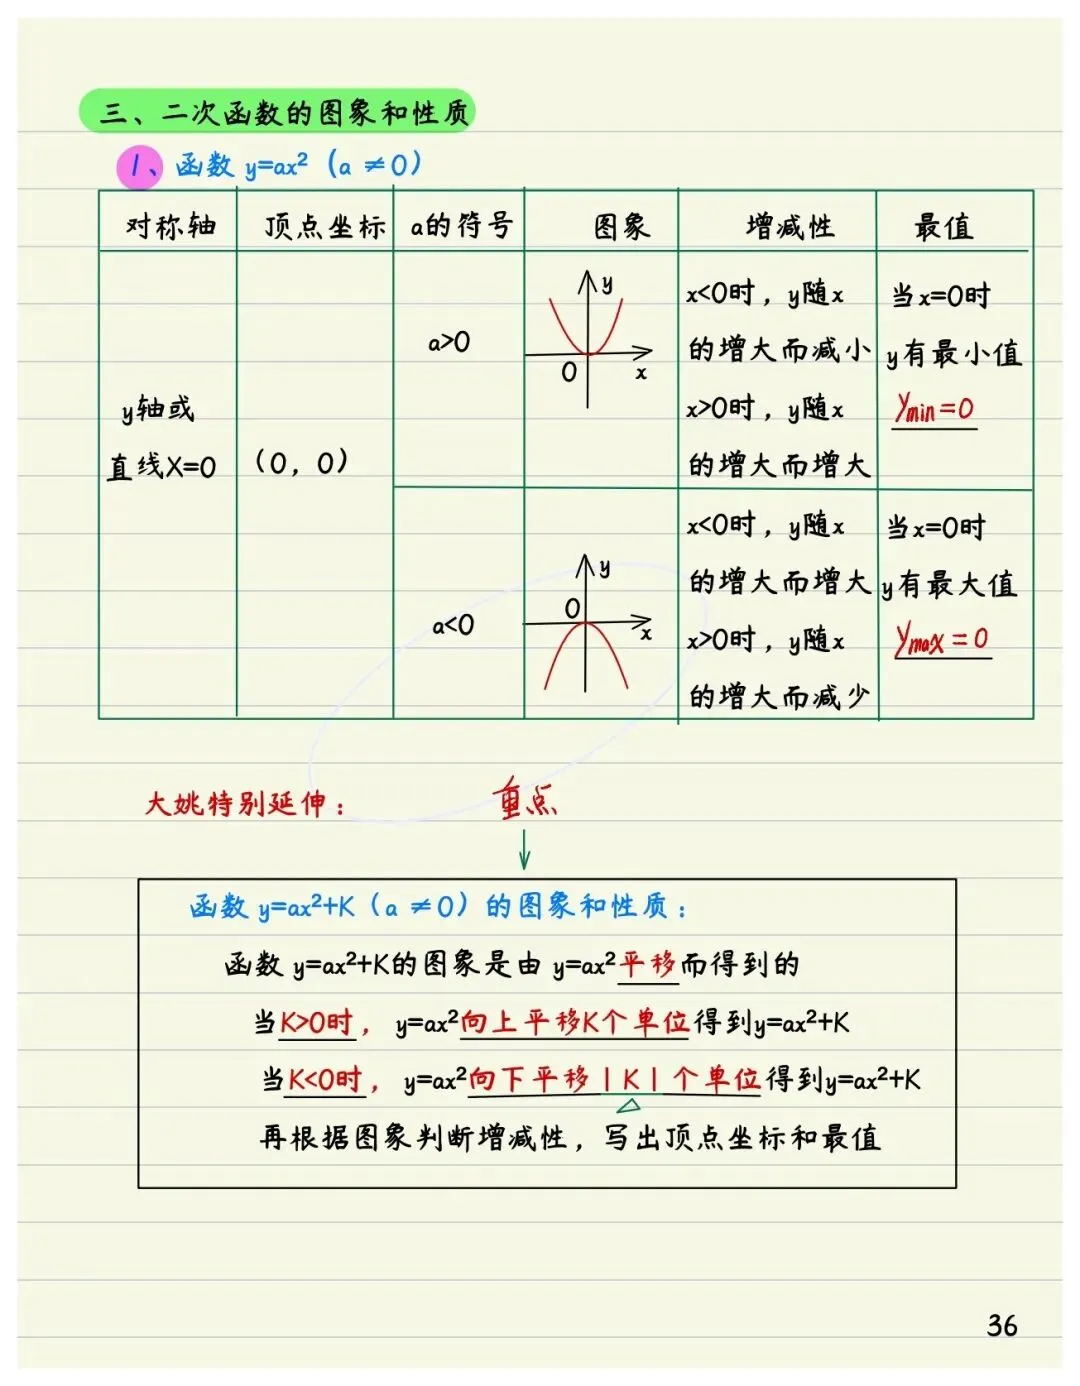 三、二次函数的图象和性质
1、函数 y=ax²（a ≠0）
对称轴 顶点坐标 a的符号 图象 增减性 最值
y轴或
直线X=0
（0，0）
a>0
y
0
x
x<0时，y随x
的增大而减小
x>0时，y随x
的增大而增大
当x=0时
y有最小值
ymin=0
a<0
y
0
x
x<0时，y随x
的增大而增大
x>0时，y随x
的增大而减少
当x=0时
y有最大值
ymax=0
大姚特别延伸：
重点
函数 y=ax²+K（a ≠0）的图象和性质：
函数 y=ax²+K的图象是由 y=ax²平移而得到的
当K>0时，y=ax²向上平移K个单位得到y=ax²+K
当K<0时，y=ax²向下平移|K|个单位得到y=ax²+K
再根据图象判断增减性，写出顶点坐标和最值
36